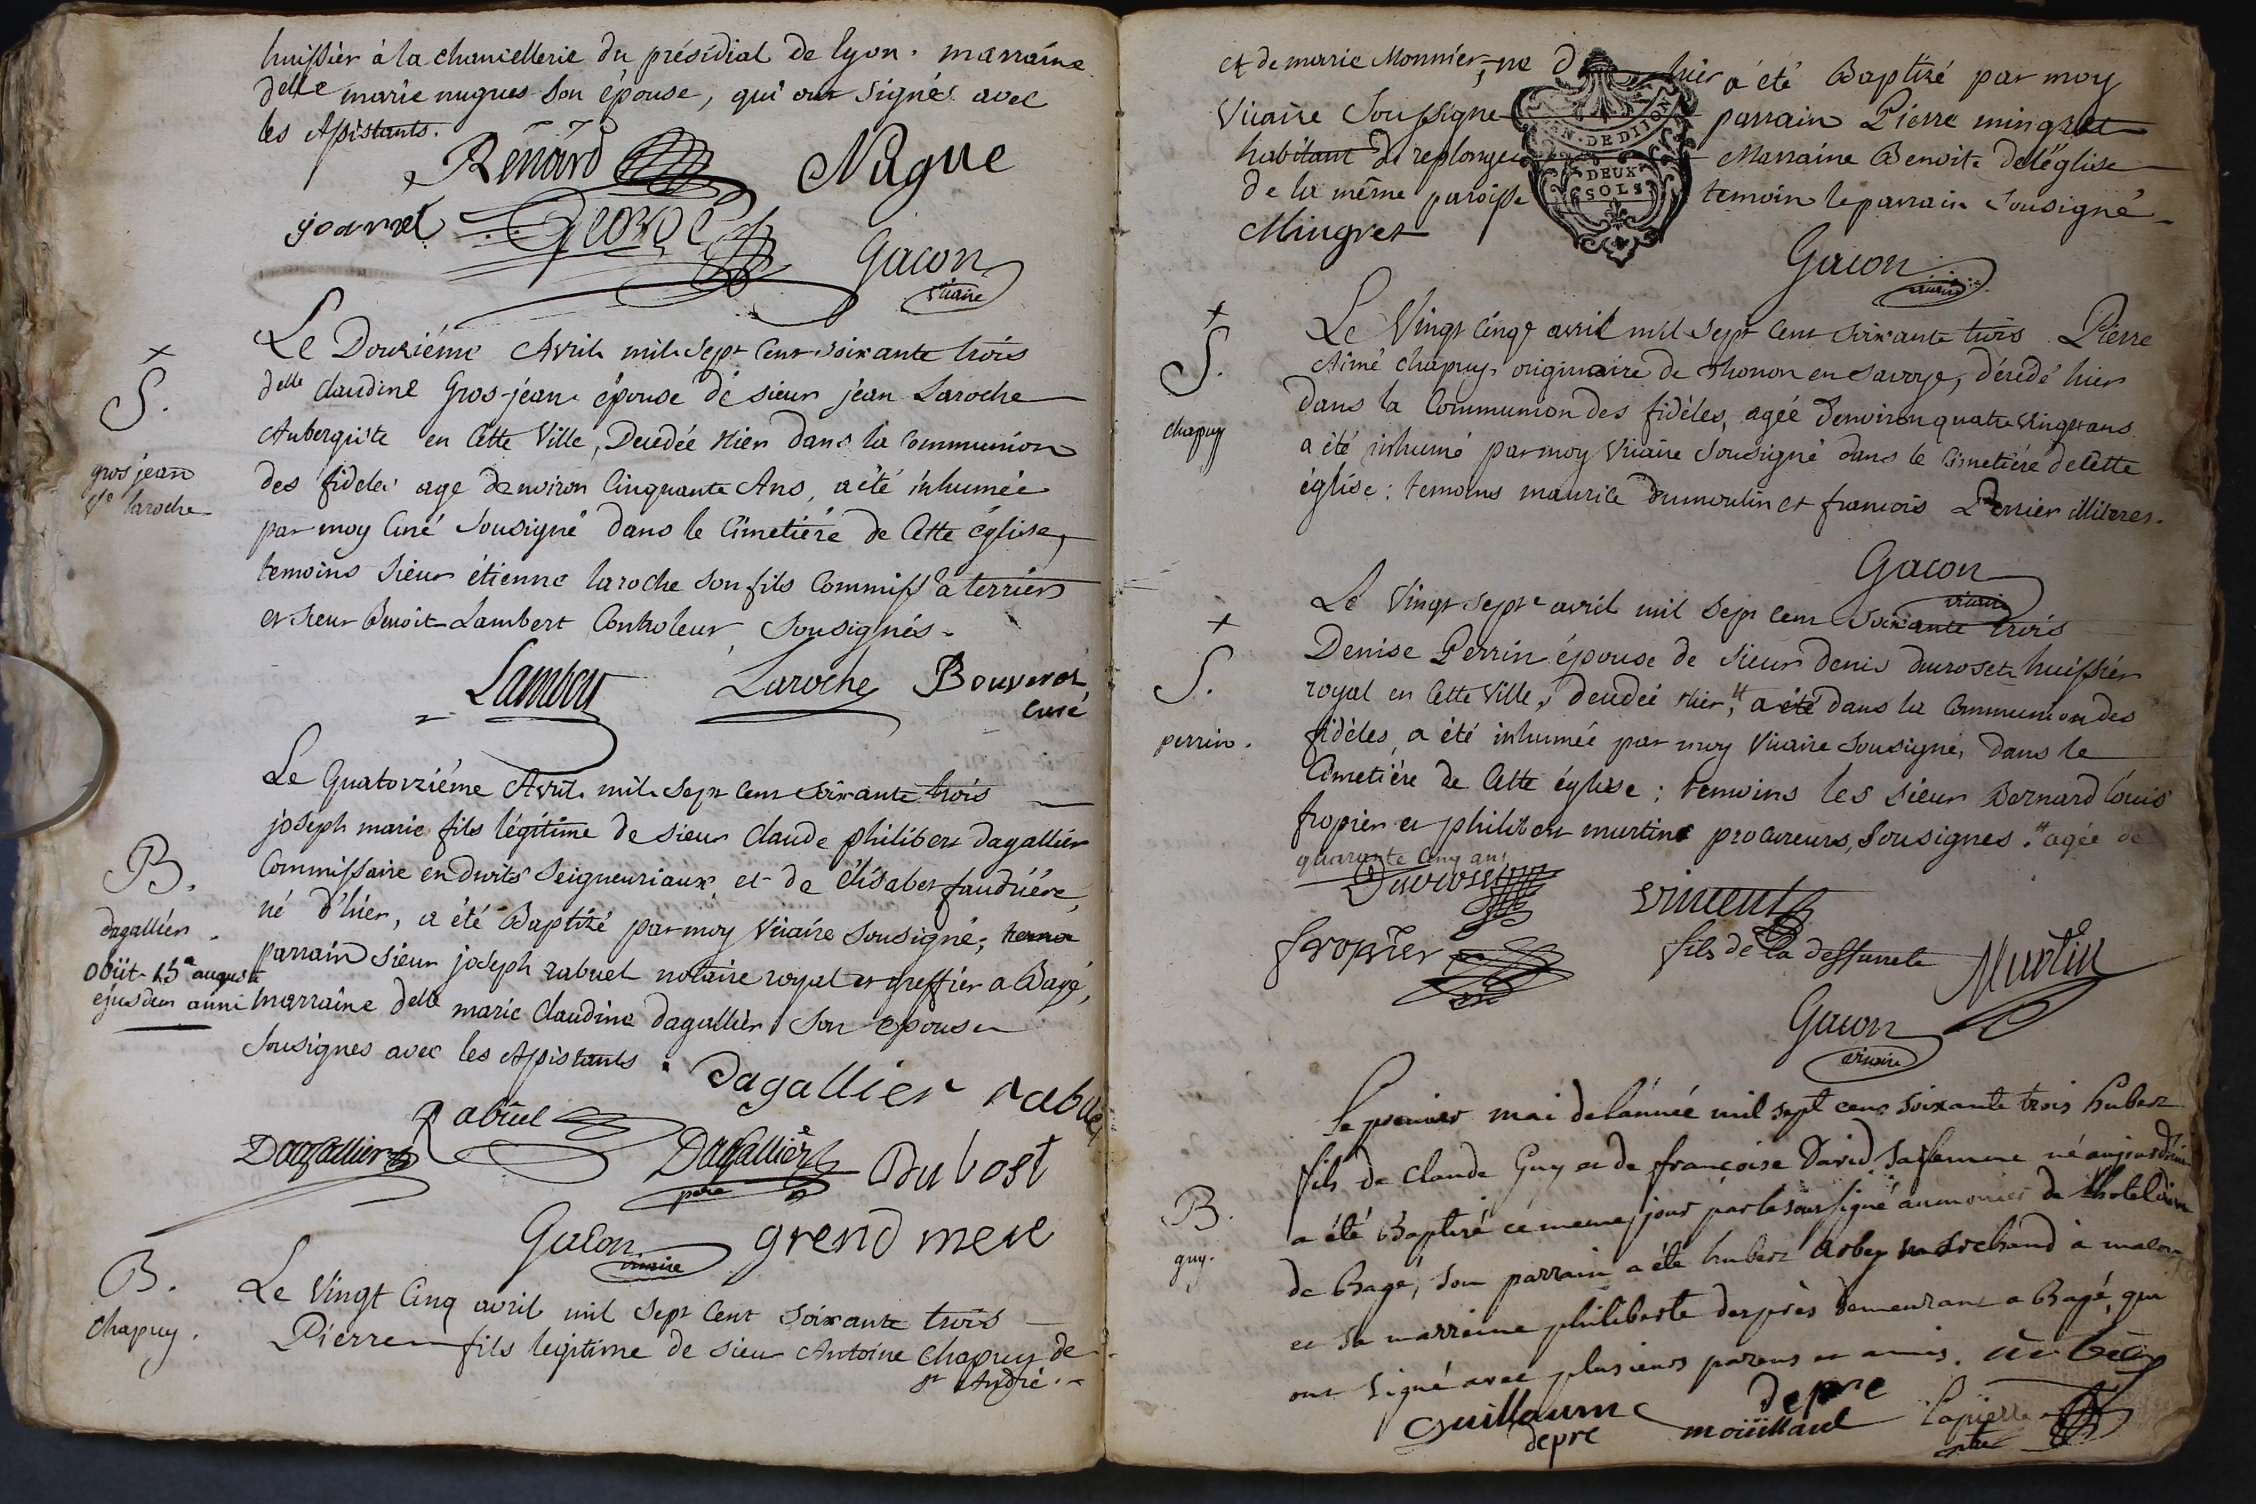 huissier à la chancellerie du présidial de lyon. marraine
delle marie nugues son épouse, qui ont signés avec
les Assistants.
Renard Nugue
George
Gacon
vicaire
Le Douziéme Avril mil sept cent soixante trois
delle claudine Gros-jean épouse de sieur jean Laroche
Aubergiste en cette Ville, Decedée hier dans la communion
des fideles age denviron cinquante Ans, a été inhumée
par moy curé sousigné dans le cimetiére de cette église,
temoins sieur étienne laroche son fils commiss.re a terriers
et sieur Benoit Lambert controleur, sousignés.
+
S.
gros jean
laroche
Lambert Laroche Bouverot
curé
Le Quatorziéme Avril mil sept cent soixante trois
joseph marie fils légitime de sieur claude philibert dagallier
commissaire en droits seigneuriaux, et de élisabet faudriére,
né d'hier, a été Baptizé par moy vicaire sousigné;
parrain sieur joseph rabuel notaire royal et greffier a Bagé,
marraine delle marie claudine dagallier son epouse
sousignes avec les Assistants.
B.
dagallier.
ejusdem anni
dagallier rabuel
Rabuel
Dagallier Dagallier
pere Dubost
Gacon
vicaire grend mere
B.
Chapuy.
Le Vingt cinq avril mil sept cent soixante trois
Pierre fils legitime de sieur Antoine Chapuy de
st André.
et de marie Monnier, né d'hier a été Baptizé par moy
Vicaire soussigné parrain Pierre mingret
habitant de replonges Marraine Benoite deléglise
de la même paroisse temoin le parrain sousigné
Mingret
GEN. DE DIJON
DEUX
SOLS
Gacon
vicaire
Le Vingt cinq avril mil sept cent soixante trois Pierre
Aimé chapuy originaire de thonon en savoye, décédé hier
dans la communion des fidèles, agéé denviron quatre vingt ans
a été inhumé par moy Vicaire sousigné dans le cimetiére de cette
église: temoins maurice dumoulin et francois Perrier illiteres.
+
S.
chapuy
Gacon
vicaire
Le Vingt sept avril mil sept cent soixante trois
Denise Perrin épouse de sieur denis durosset huissier
royal en cette Ville, decedée hier, # a été dans la communion des
fidèles, a été inhumée par moy Vicaire sousigné, dans le
cimetiére de cette église: temoins les sieur Bernard louis
fropier et philibert martine procureurs, sousignes. # agée de
quarante cinq ans
+
S.
perrin.
Durosset vincent
fils de la deffunte
fropier Martin
Gacon
vicaire
Le premier mai de lánnéé mil sept cens soixante trois hubert
fils de claude Guy et de françoise David sa femme né aujourdhui
a été Baptizé ce meme jour par le soussigné aumonier de lhotel dieu
de Bagé, son parrain a été hubert arbey marchand à macon
et sa marreine philiberte desprès demeurant a Bagé, qui
ont signé avec plusieurs parens et amis.
B.
guy.
Guillaume
depre
depre
moüillaud
Lapierre